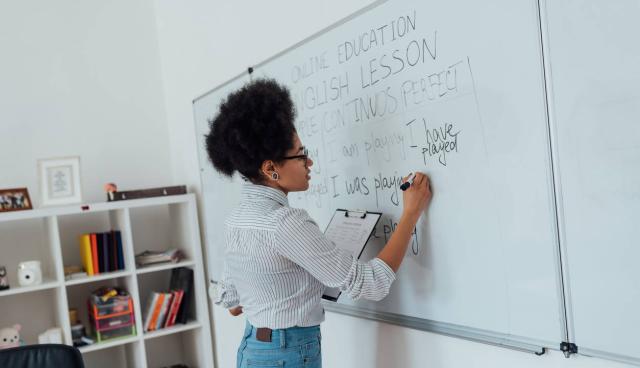 ONLINE EDUCATION
ENGLISH LESSON
CONTINUOS PERFECT
I am playing I have played
I was playing